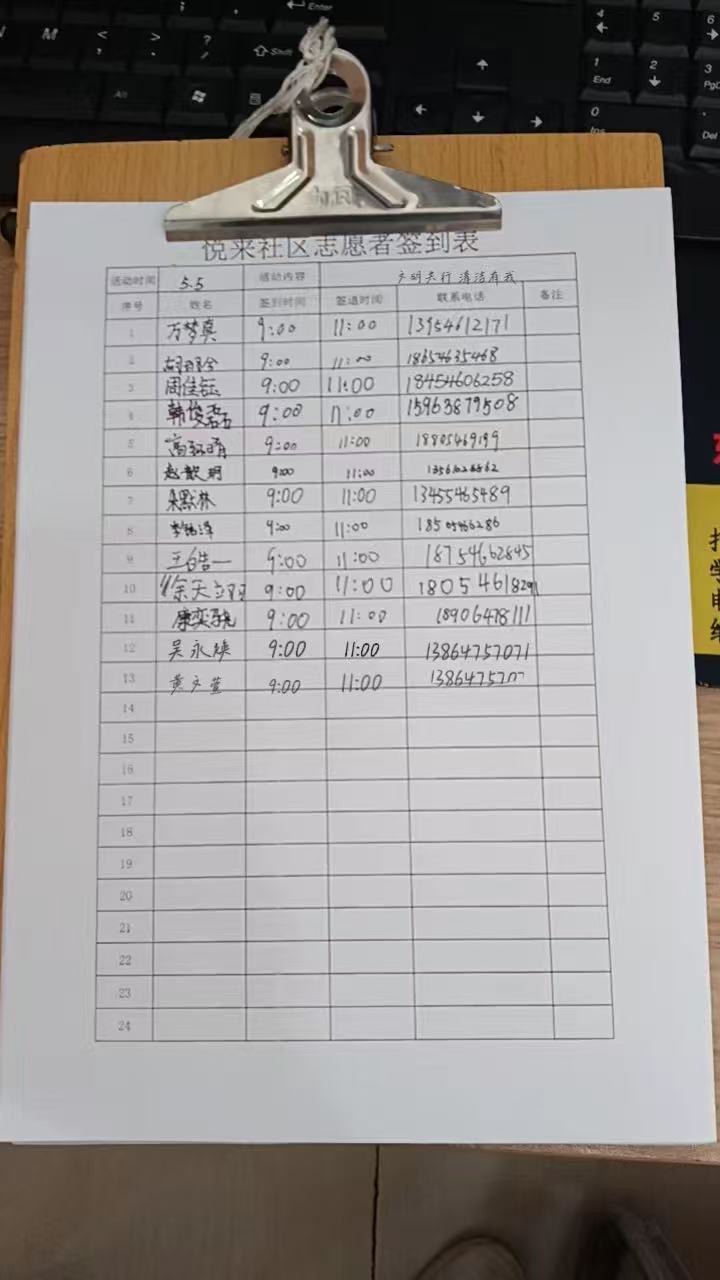 悦来社区志愿者签到表
活动时间 5.5 活动内容 文明先行 清洁有我
序号 姓名 签到时间 签退时间 联系电话 备注
1 万梦真 9:00 11:00 13954612171
2 9:00 11:00 18654635468
3 周佳钰 9:00 11:00 18454606258
4 韩俊磊 9:00 11:00 15963879508
5 9:00 11:00 18805469199
6 9:00 11:00
7 朱默林 9:00 11:00 13455465489
8 9:00 11:00 18505466286
9 王皓一 9:00 11:00 18754662845
10 徐天翊 9:00 11:00
11 康奕骁 9:00 11:00 18906478111
12 吴永焕 9:00 11:00 13864757071
13 黄文萱 9:00 11:00
14
15
16
17
18
19
20
21
22
23
24